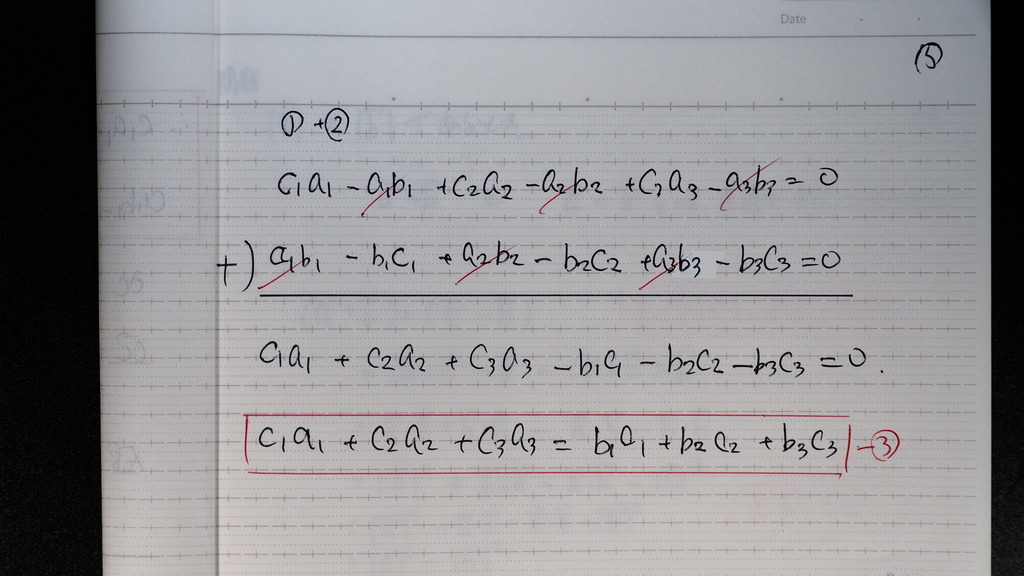 Date
(5)
① + ②
c₁a₁ - a₁b₁ + c₂a₂ - a₂b₂ + c₃a₃ - a₃b₃ = 0
+) a₁b₁ - b₁c₁ + a₂b₂ - b₂c₂ + a₃b₃ - b₃c₃ = 0
c₁a₁ + c₂a₂ + c₃a₃ - b₁c₁ - b₂c₂ - b₃c₃ = 0.
c₁a₁ + c₂a₂ + c₃a₃ = b₁c₁ + b₂c₂ + b₃c₃ - ③